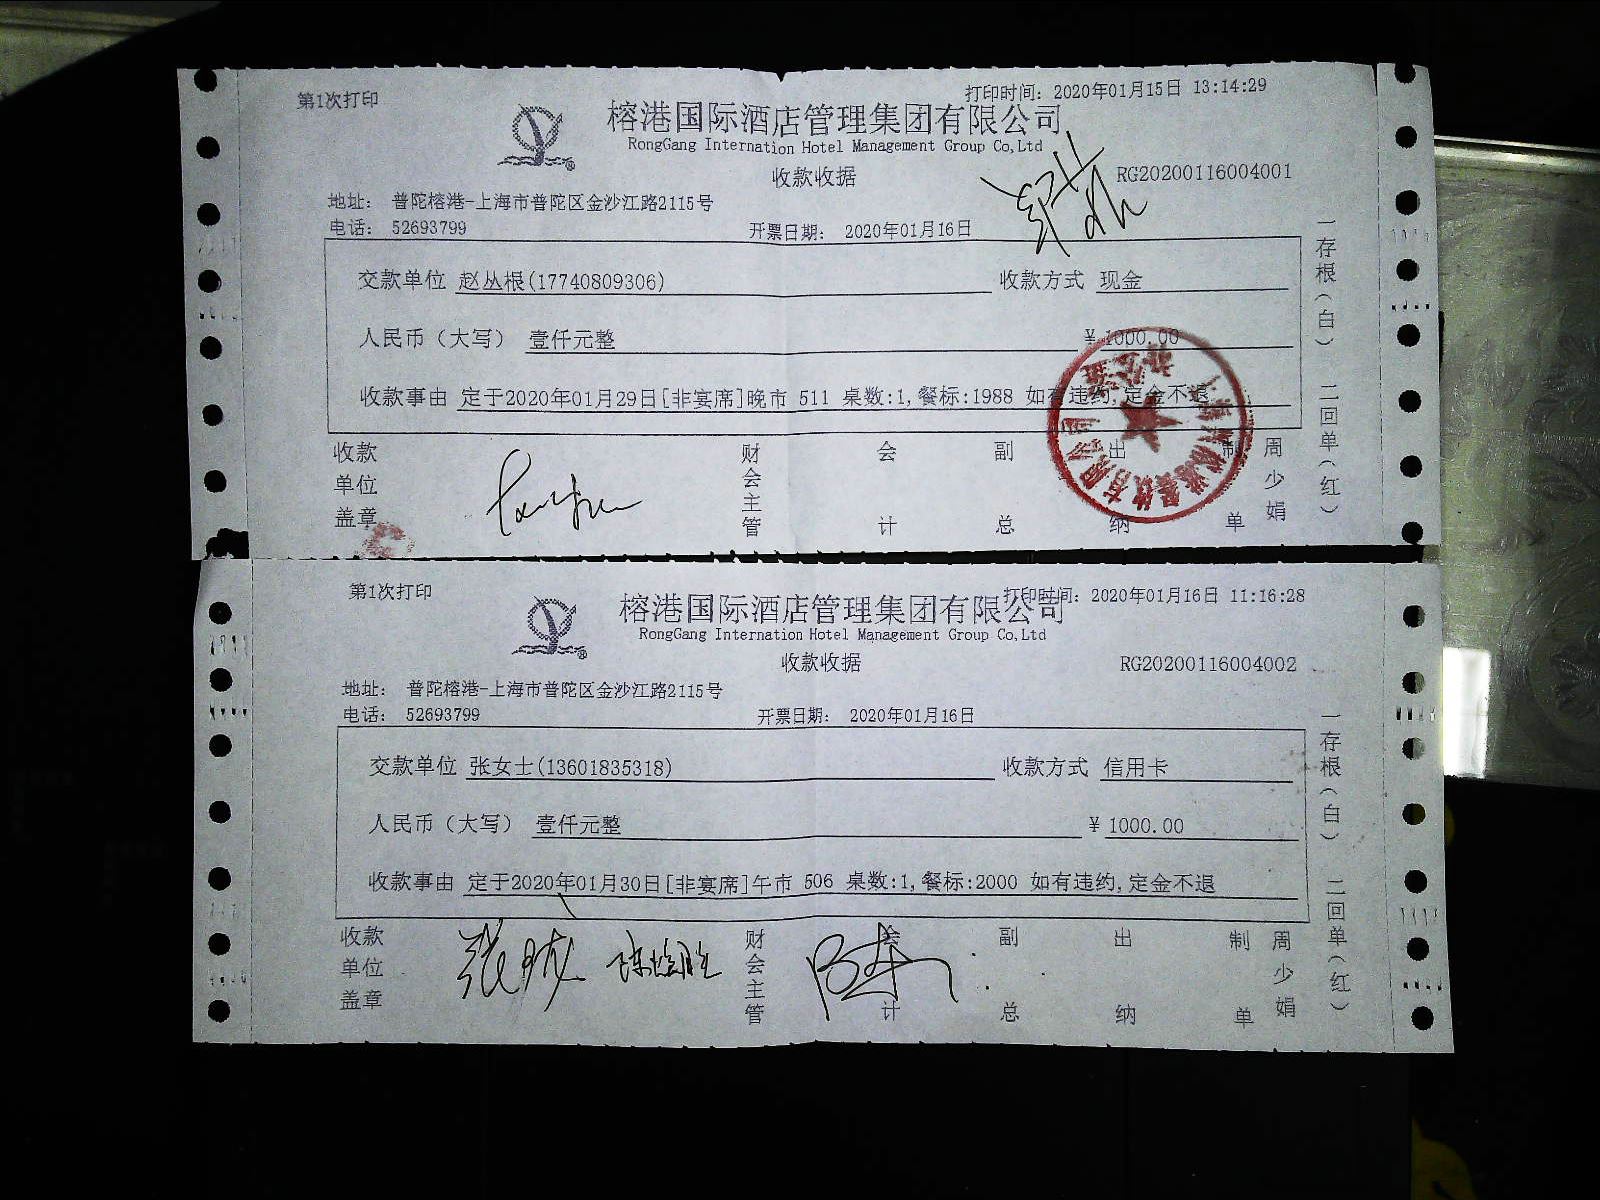 第1次打印
打印时间: 2020年01月15日 13:14:29
榕港国际酒店管理集团有限公司
RongGang Internation Hotel Management Group Co,Ltd
收款收据
RG20200116004001
地址: 普陀榕港-上海市普陀区金沙江路2115号
电话: 52693799
开票日期: 2020年01月16日
交款单位 赵丛根(17740809306) 收款方式 现金
人民币(大写) 壹仟元整 ¥ 1000.00
收款事由 定于2020年01月29日[非宴席]晚市 511 桌数:1,餐标:1988 如有违约,定金不退
收款单位盖章 财会主管 会计 副总 出纳 制单 周少娟
一存根(白) 二回单(红)
第1次打印
打印时间: 2020年01月16日 11:16:28
榕港国际酒店管理集团有限公司
RongGang Internation Hotel Management Group Co,Ltd
收款收据
RG20200116004002
地址: 普陀榕港-上海市普陀区金沙江路2115号
电话: 52693799
开票日期: 2020年01月16日
交款单位 张女士(13601835318) 收款方式 信用卡
人民币(大写) 壹仟元整 ¥ 1000.00
收款事由 定于2020年01月30日[非宴席]午市 506 桌数:1,餐标:2000 如有违约,定金不退
收款单位盖章 财会主管 会计 副总 出纳 制单 周少娟
一存根(白) 二回单(红)